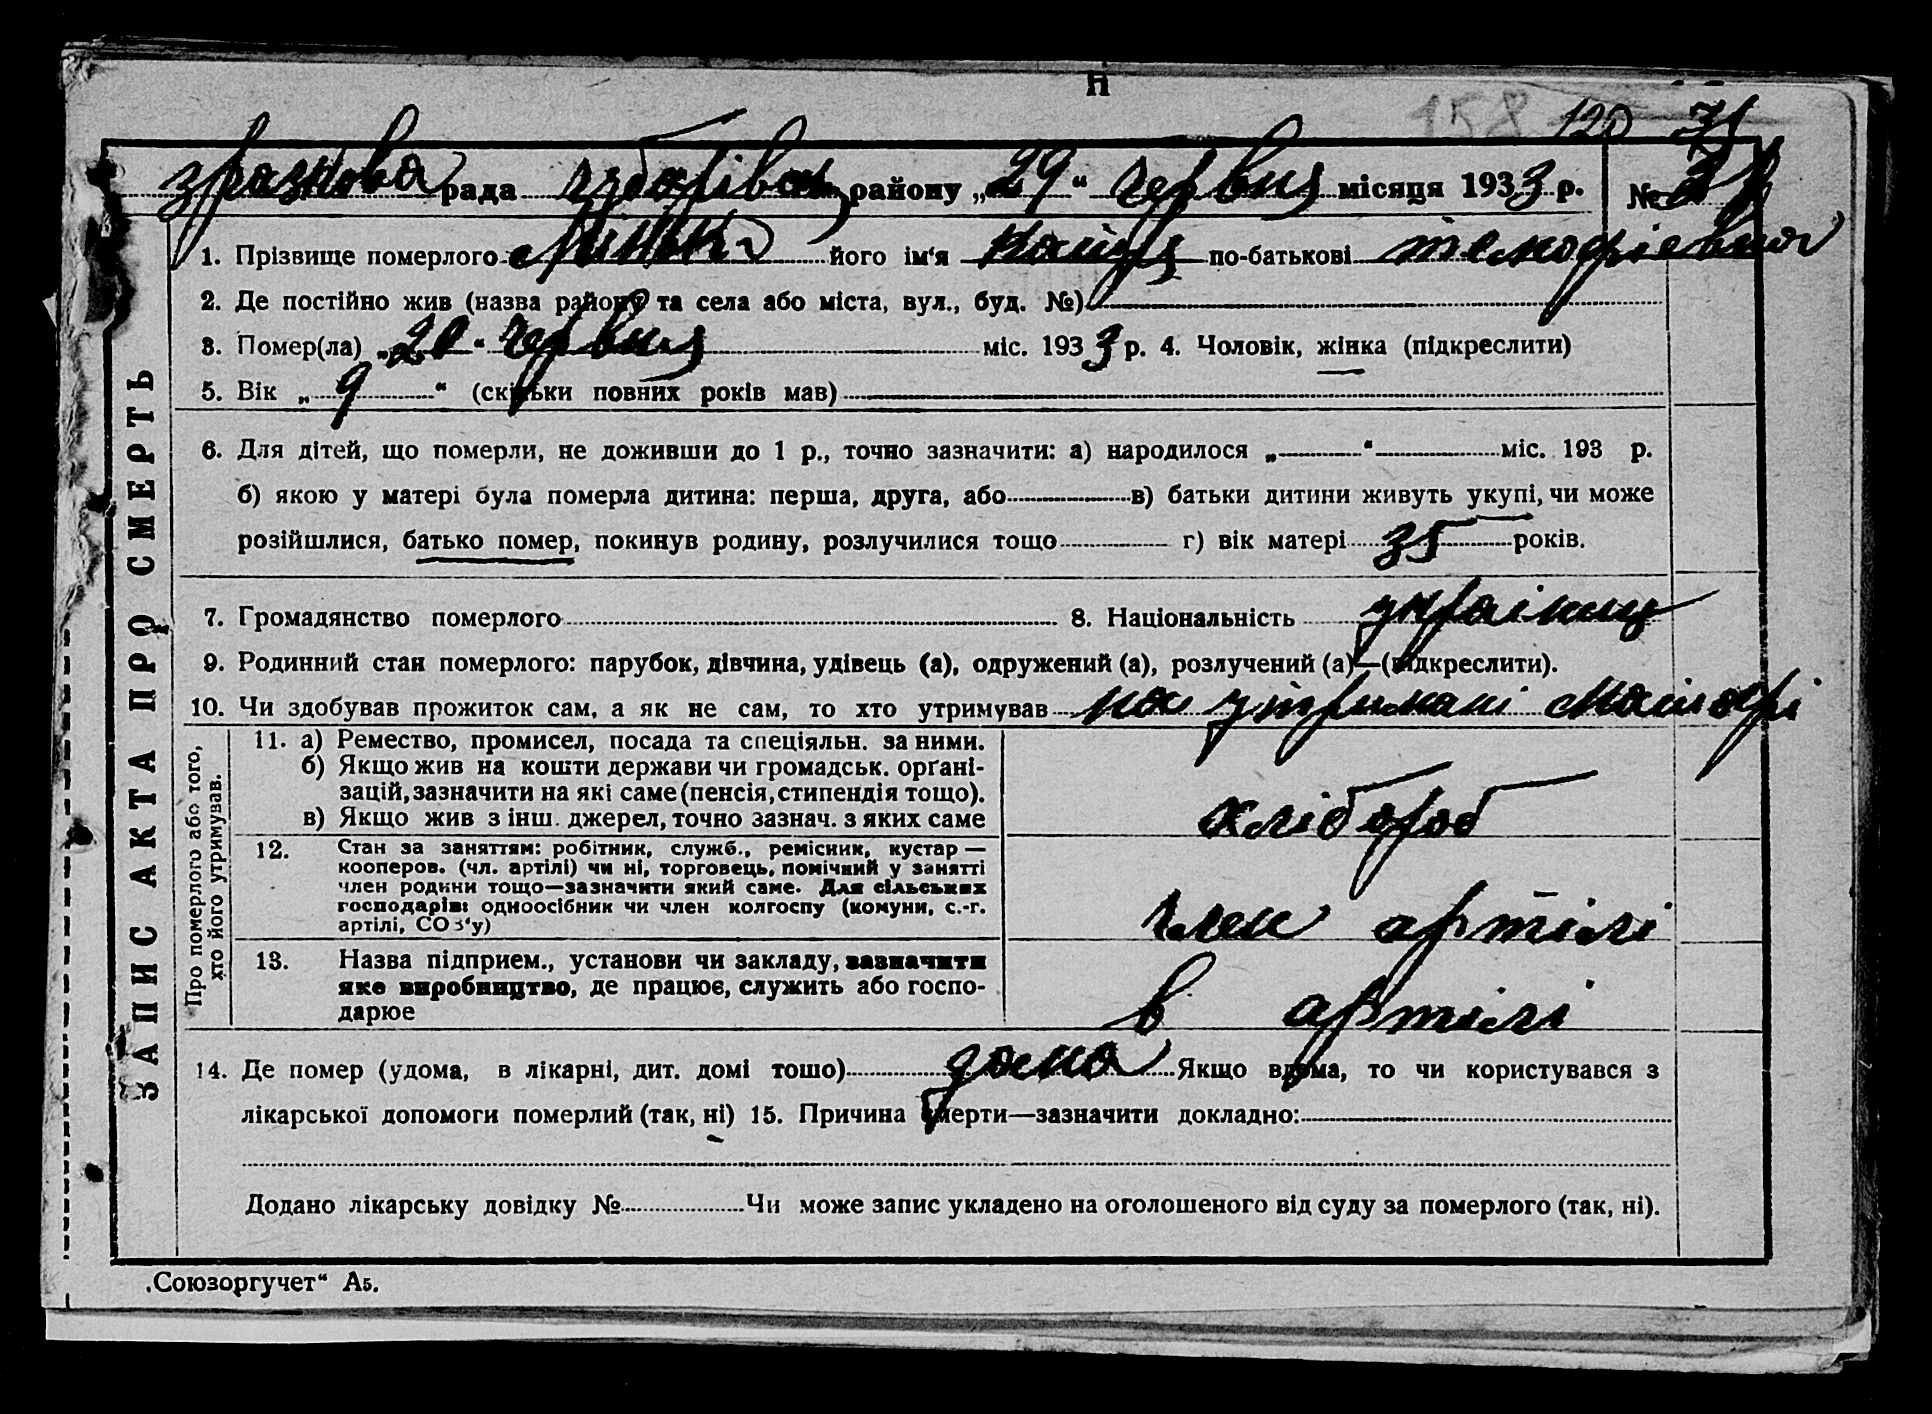 п
158 120 31
зразкова рада району „29“ червня місяця 1933 р. № 31
1. Прізвище померлого його ім‘я по-батькові
2. Де постійно жив (назва району та села або міста, вул., буд. №)
3. Помер(ла) „20“ червня міс. 1933 р. 4. Чоловік, жінка (підкреслити)
5. Вік „9“ (скільки повних років мав)
6. Для дітей, що померли, не доживши до 1 р., точно зазначити: а) народилося „ “ міс. 193 р.
б) якою у матері була померла дитина: перша, друга, або в) батьки дитини живуть укупі, чи може
розійшлися, батько помер, покинув родину, розлучилися тощо г) вік матері 35 років.
7. Громадянство померлого 8. Національність українц
9. Родинний стан померлого: парубок, дівчина, удівець (а), одружений (а), розлучений (а)—(підкреслити).
10. Чи здобував прожиток сам, а як не сам, то хто утримував на утримані матері
ЗАПИС АКТА ПРО СМЕРТЬ
Про померлого або того,
хто його утримував.
11. а) Ремество, промисел, посада та спеціяльн. за ними.
б) Якщо жив на кошти держави чи громадськ. орґані-
зацій, зазначити на які саме (пенсія, стипендія тощо).
в) Якщо жив з інш. джерел, точно зазнач. з яких саме
хлібороб
12. Стан за заняттям: робітник, служб., ремісник, кустар —
кооперов. (чл. артілі) чи ні, торговець, помічний у занятті
член родини тощо—зазначити який саме. Для сільських
господарів: одноосібник чи член колгоспу (комуни, с.-г.
артілі, СОЗ‘у)
член артілі
13. Назва підприєм., установи чи закладу, зазначити
яке виробництво, де працює, служить або госпо-
дарює
в артілі
14. Де помер (удома, в лікарні, дит. домі тощо) дома Якщо вдома, то чи користувався з
лікарської допомоги померлий (так, ні) 15. Причина смерти—зазначити докладно:
Додано лікарську довідку № Чи може запис укладено на оголошеного від суду за померлого (так, ні).
„Союзоргучет“ А5.